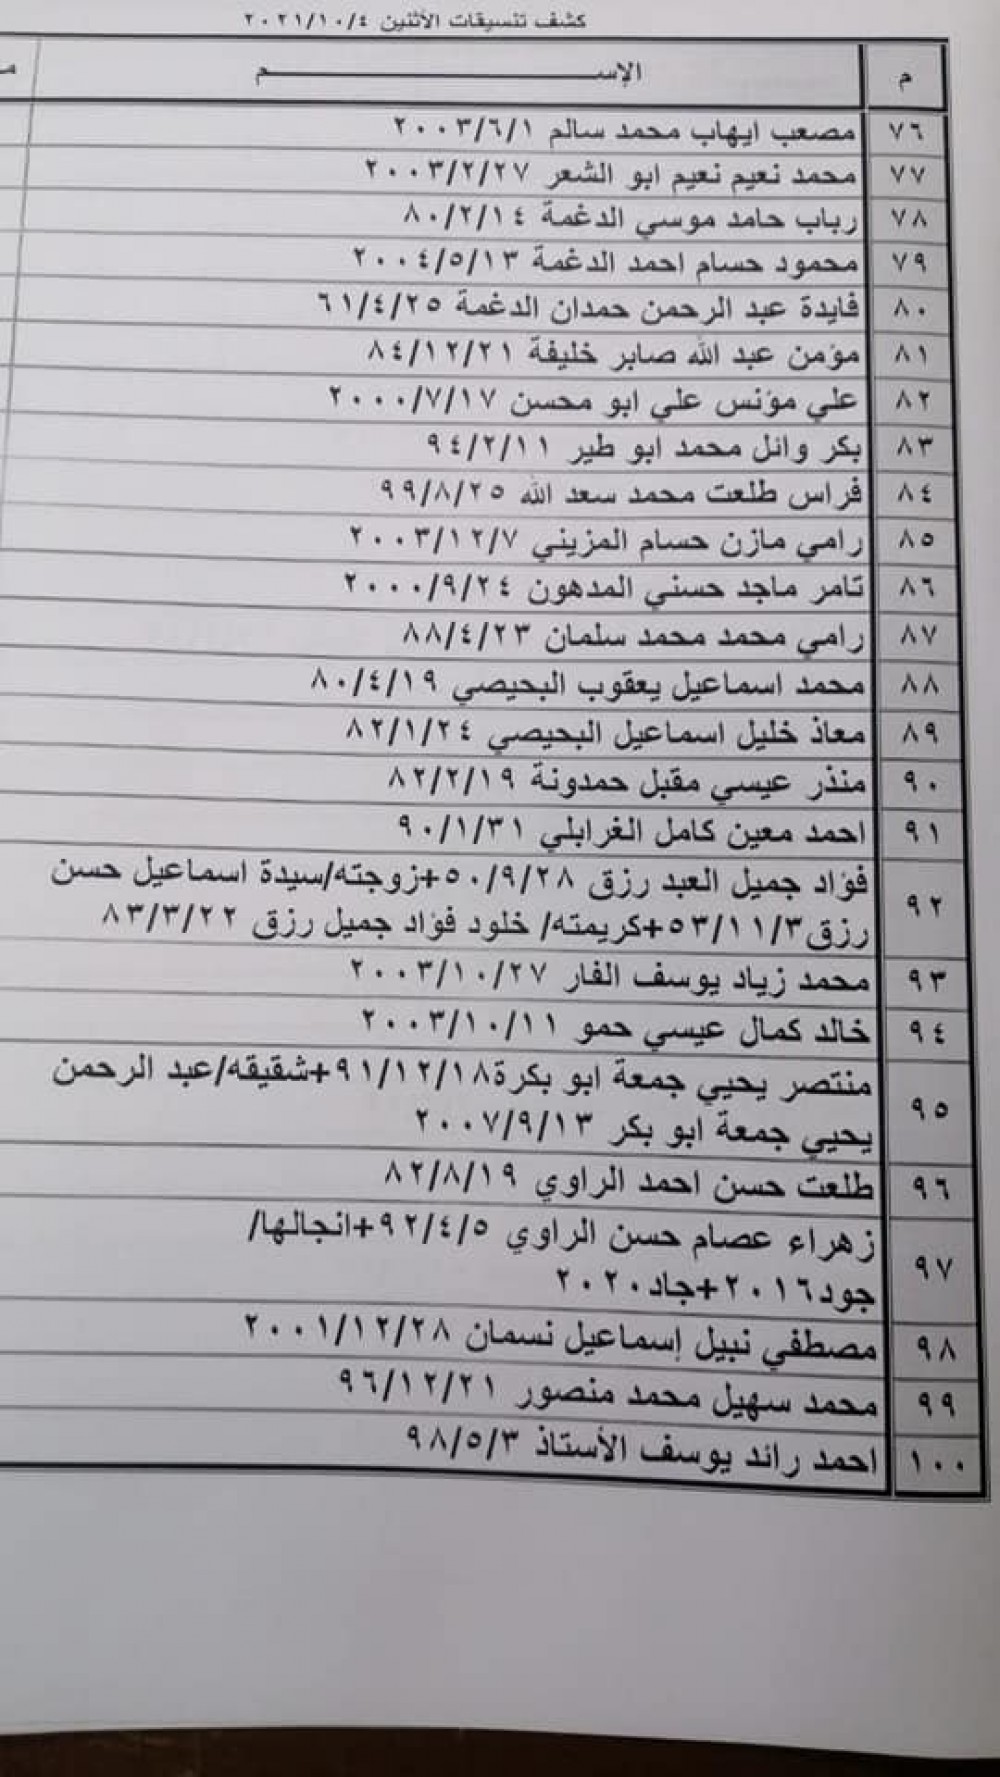 كشف تنسيقات الأثنين ٢٠٢١/١٠/٤
م الإســـــــــــــم
٧٦ مصعب ايهاب محمد سالم ٢٠٠٣/٦/١
٧٧ محمد نعيم نعيم ابو الشعر ٢٠٠٣/٢/٢٧
٧٨ رباب حامد موسي الدغمة ٨٠/٢/١٤
٧٩ محمود حسام احمد الدغمة ٢٠٠٤/٥/١٣
٨٠ فايدة عبد الرحمن حمدان الدغمة ٦١/٤/٢٥
٨١ مؤمن عبد الله صابر خليفة ٨٤/١٢/٢١
٨٢ علي مؤنس علي ابو محسن ٢٠٠٠/٧/١٧
٨٣ بكر وائل محمد ابو طير ٩٤/٢/١١
٨٤ فراس طلعت محمد سعد الله ٩٩/٨/٢٥
٨٥ رامي مازن حسام المزيني ٢٠٠٣/١٢/٧
٨٦ تامر ماجد حسني المدهون ٢٠٠٠/٩/٢٤
٨٧ رامي محمد محمد سلمان ٨٨/٤/٢٣
٨٨ محمد اسماعيل يعقوب البحيصي ٨٠/٤/١٩
٨٩ معاذ خليل اسماعيل البحيصي ٨٢/١/٢٤
٩٠ منذر عيسي مقبل حمدونة ٨٢/٢/١٩
٩١ احمد معين كامل الغرابلي ٩٠/١/٣١
٩٢ فؤاد جميل العبد رزق ٥٠/٩/٢٨+زوجته/سيدة اسماعيل حسن
رزق٥٣/١١/٣+كريمته/ خلود فؤاد جميل رزق ٨٣/٣/٢٢
٩٣ محمد زياد يوسف الفار ٢٠٠٣/١٠/٢٧
٩٤ خالد كمال عيسي حمو ٢٠٠٣/١٠/١١
٩٥ منتصر يحيي جمعة ابو بكرة٩١/١٢/١٨+شقيقه/عبد الرحمن
يحيي جمعة ابو بكر ٢٠٠٧/٩/١٣
٩٦ طلعت حسن احمد الراوي ٨٢/٨/١٩
٩٧ زهراء عصام حسن الراوي ٩٢/٤/٥+انجالها/
جود٢٠١٦+جاد٢٠٢٠
٩٨ مصطفي نبيل إسماعيل نسمان ٢٠٠١/١٢/٢٨
٩٩ محمد سهيل محمد منصور ٩٦/١٢/٢١
١٠٠ احمد رائد يوسف الأستاذ ٩٨/٥/٣